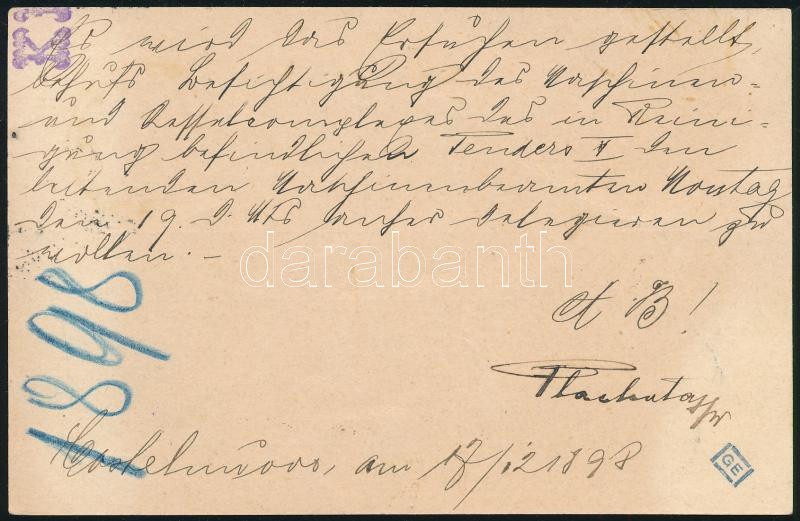 Es wird das Ersuchen gestellt,
behufs Besichtigung des Maschinen-
und Kesselcomplexes des in Reini-
gung befindlichen Tenders II den
leitenden Maschinenbeamten Montag
den 19. d. Mts anher delegieren zu
wollen. –
darabanth
A B!
1898
am 17/12 1898
GE